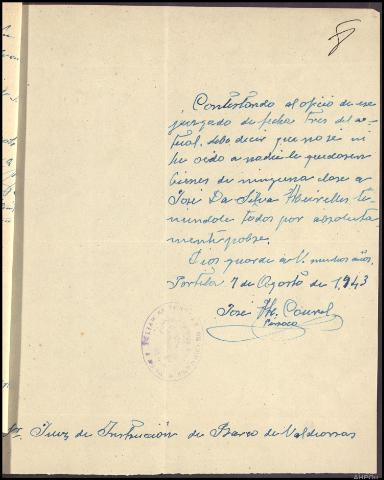 Contestando al oficio de ese
juzgado de fecha tres del ac-
tual, debo decir que no se ni
he oido a nadie le quedasen
bienes de ninguna clase a
José Da Silva Meirelles te-
niendole todos por absoluta
mente pobre.
Dios guarde a V. muchos años.
Portela 7 de Agosto de 1943
José M. Courel
Párroco
Sr. Juez de Instrucción de Barco de Valdeorras